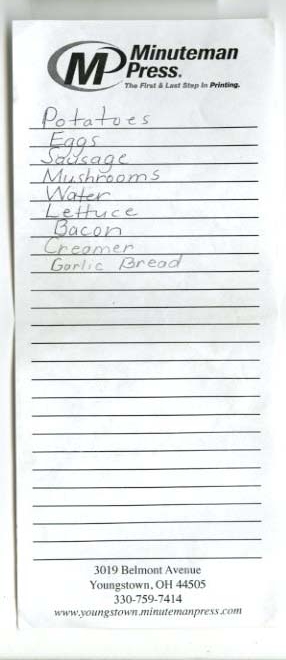 MP Minuteman
Press®
The First & Last Step In Printing.
Potatoes
Eggs
Sausage
Mushrooms
Water
Lettuce
Bacon
Creamer
Garlic Bread
3019 Belmont Avenue
Youngstown, OH 44505
330-759-7414
www.youngstown.minutemanpress.com